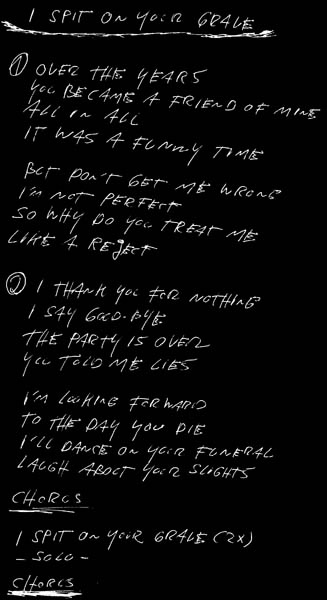 I SPIT ON YOUR GRAVE
1 OVER THE YEARS
YOU BECAME A FRIEND OF MINE
ALL IN ALL
IT WAS A FUNNY TIME
BUT DON'T GET ME WRONG
I'M NOT PERFECT
SO WHY DO YOU TREAT ME
LIKE A REJECT
2 I THANK YOU FOR NOTHING
I SAY GOOD-BYE
THE PARTY IS OVER
YOU TOLD ME LIES
I'M LOOKING FORWARD
TO THE DAY YOU DIE
I'LL DANCE ON YOUR FUNERAL
LAUGH ABOUT YOUR SLIGHTS
CHORUS
I SPIT ON YOUR GRAVE (2X)
- SOLO -
CHORUS